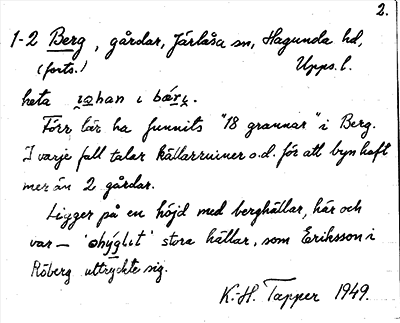 2.
1-2 Berg, gårdar, Järlåsa sn, Hagunda hd,
(forts.) Upps. l.
heta johan i bærj.
Förr lär ha funnits "18 grannar" i Berg.
I varje fall talar källarruiner o.d. för att byn haft
mer än 2 gårdar.
Ligger på en höjd med berghällar, här och
var — 'ohýglit' stora hällar, som Eriksson i
Röberg uttryckte sig.
K.-H. Tapper 1949.